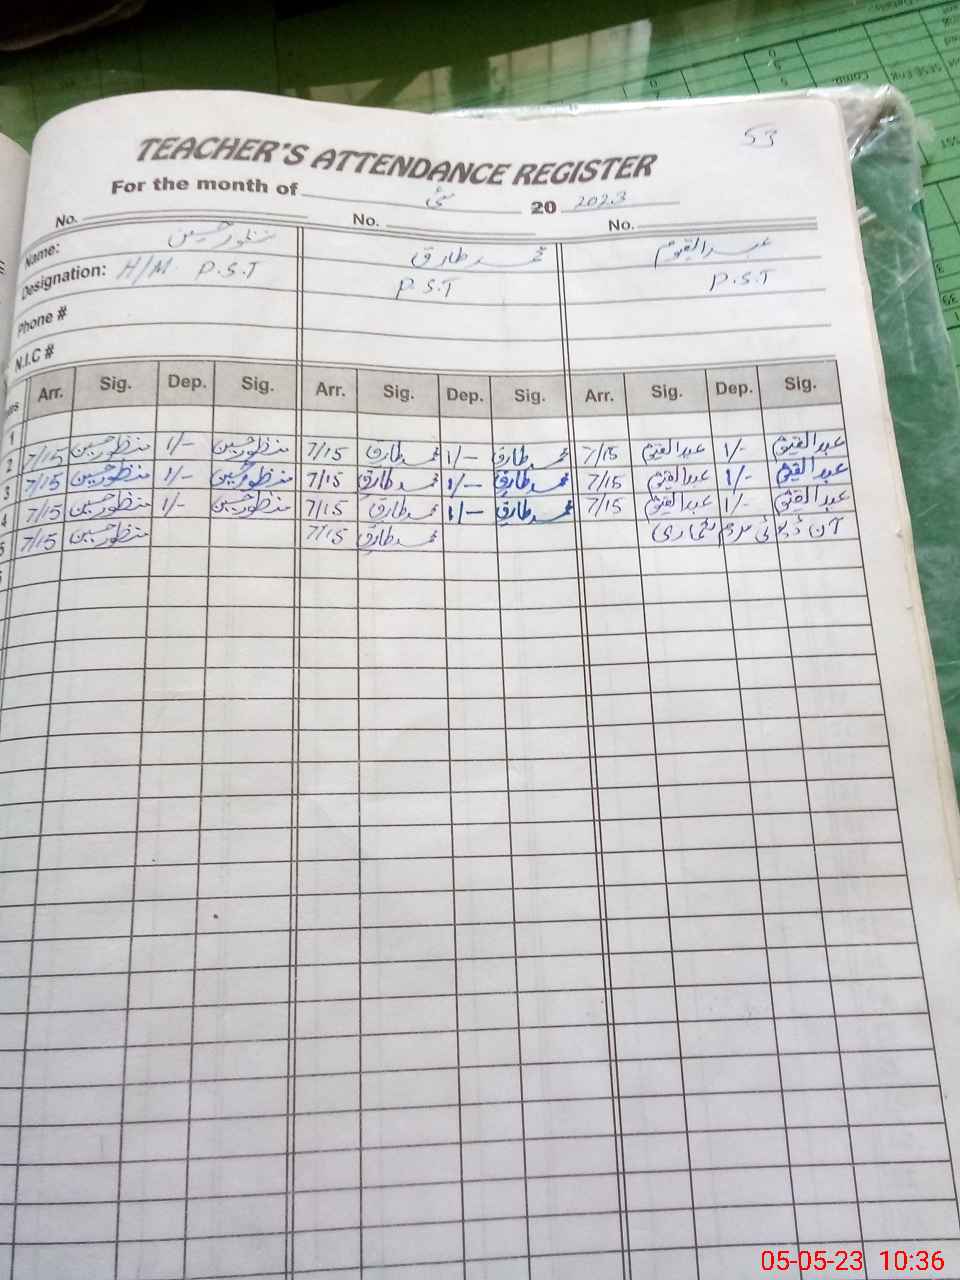 53
TEACHER'S ATTENDANCE REGISTER
For the month of مئی 20 2023
No. No. No.
Name: منظور حسین محمد طارق عبدالقیوم
Designation: H/M P.S.T P.S.T P.S.T
Phone #
N.I.C #
Arr. Sig. Dep. Sig. Arr. Sig. Dep. Sig. Arr. Sig. Dep. Sig.
1
2 7/15 منظور حسین 1/- منظور حسین 7/15 محمد طارق 1/- محمد طارق 7/15 عبدالقیوم 1/- عبدالقیوم
3 7/15 منظور حسین 1/- منظور حسین 7/15 محمد طارق 1/- محمد طارق 7/15 عبدالقیوم 1/- عبدالقیوم
4 7/15 منظور حسین 1/- منظور حسین 7/15 محمد طارق 1/- محمد طارق 7/15 عبدالقیوم 1/- عبدالقیوم
5 7/15 منظور حسین 7/15 محمد طارق آن ڈیوٹی مردم شماری
05-05-23 10:36